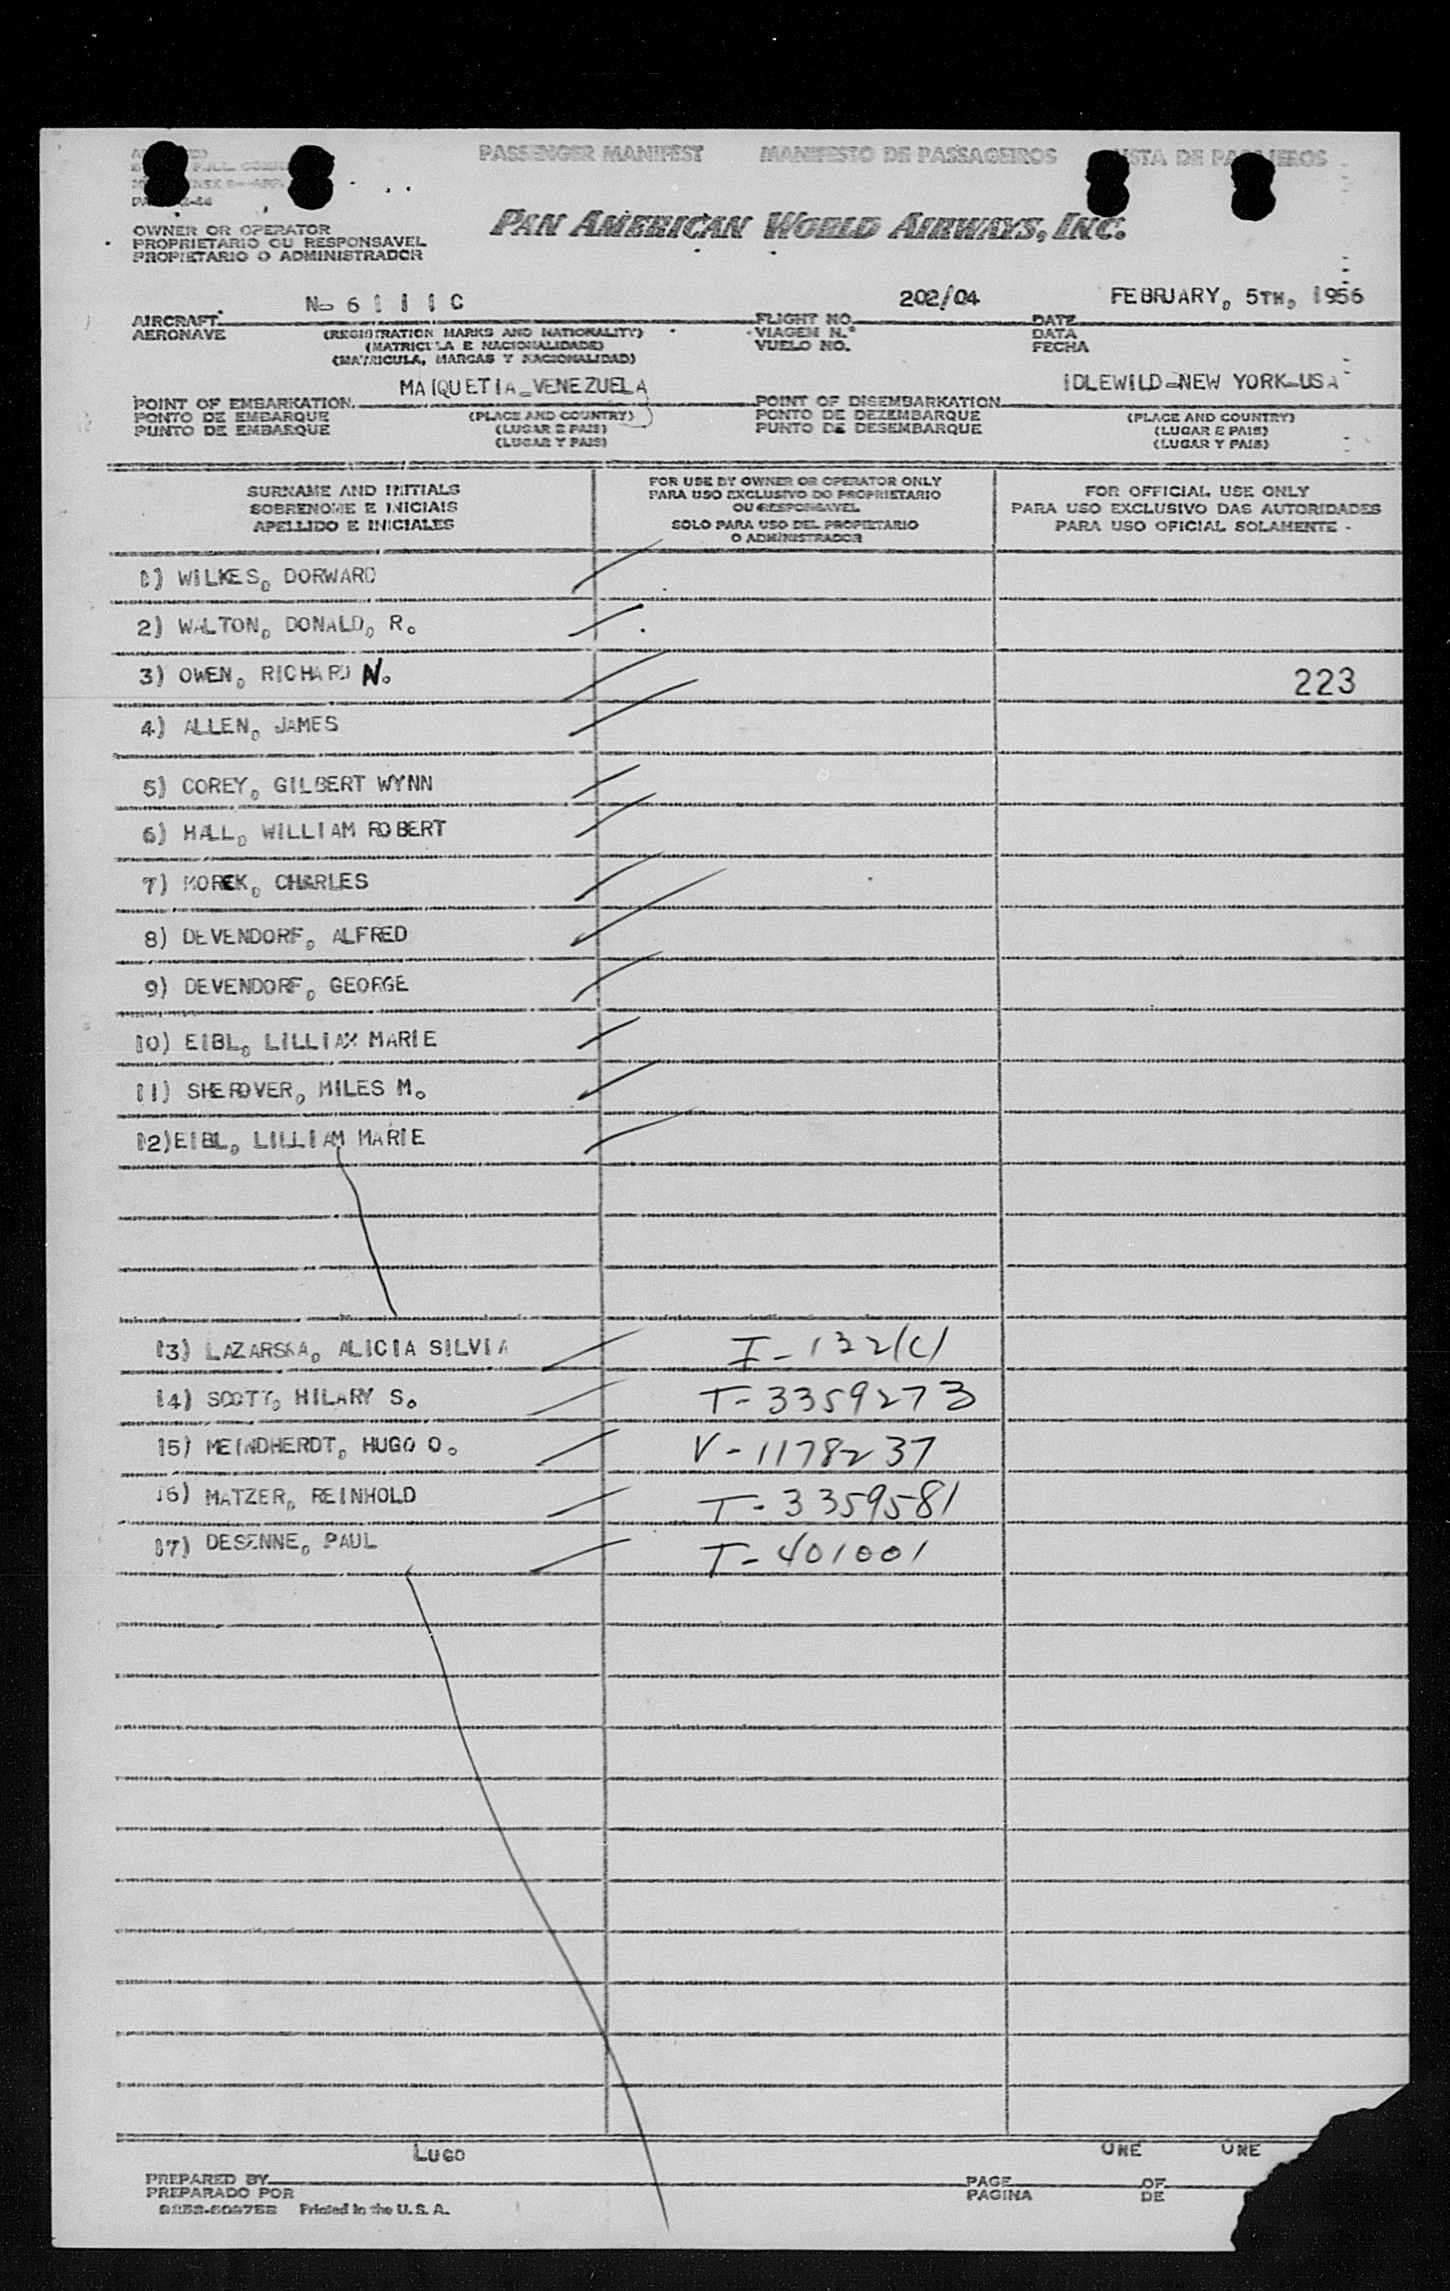 PASSENGER MANIFEST MANIFESTO DE PASSAGEIROS LISTA DE PASAJEROS
OWNER OR OPERATOR
PROPRIETARIO OU RESPONSAVEL
PROPIETARIO O ADMINISTRADOR
PAN AMERICAN WORLD AIRWAYS, INC.
N- 6111C 202/04 FEBRUARY, 5TH, 1956
AIRCRAFT FLIGHT NO. DATE
AERONAVE (REGISTRATION MARKS AND NATIONALITY) VIAGEM N.° DATA
(MATRICULA E NACIONALIDADE) VUELO NO. FECHA
(MATRICULA, MARCAS Y NACIONALIDAD)
MAIQUETIA-VENEZUELA IDLEWILD-NEW YORK-USA
POINT OF EMBARKATION POINT OF DISEMBARKATION
PONTO DE EMBARQUE (PLACE AND COUNTRY) PONTO DE DEZEMBARQUE (PLACE AND COUNTRY)
PUNTO DE EMBARQUE (LUGAR E PAIS) PUNTO DE DESEMBARQUE (LUGAR E PAIS)
(LUGAR Y PAIS) (LUGAR Y PAIS)
SURNAME AND INITIALS
SOBRENOME E INICIAIS
APELLIDO E INICIALES
FOR USE BY OWNER OR OPERATOR ONLY
PARA USO EXCLUSIVO DO PROPRIETARIO
OU RESPONSAVEL
SOLO PARA USO DEL PROPIETARIO
O ADMINISTRADOR
FOR OFFICIAL USE ONLY
PARA USO EXCLUSIVO DAS AUTORIDADES
PARA USO OFICIAL SOLAMENTE -
1) WILKES, DORWARD
2) WALTON, DONALD, R.
3) OWEN, RICHARD N. 223
4) ALLEN, JAMES
5) COREY, GILBERT WYNN
6) HALL, WILLIAM ROBERT
7) MOREK, CHARLES
8) DEVENDORF, ALFRED
9) DEVENDORF, GEORGE
10) EIBL, LILLIAM MARIE
11) SHEROVER, MILES M.
12) EIBL, LILLIAM MARIE
13) LAZARSKA, ALICIA SILVIA I-122(C)
14) SCOTT, HILARY S. T-3359273
15) MEINDHERDT, HUGO O. V-1178237
16) MATZER, REINHOLD T-3359581
17) DESENNE, PAUL T-401001
LUGO ONE ONE
PREPARED BY PAGE OF
PREPARADO POR PAGINA DE
Printed in the U. S. A.